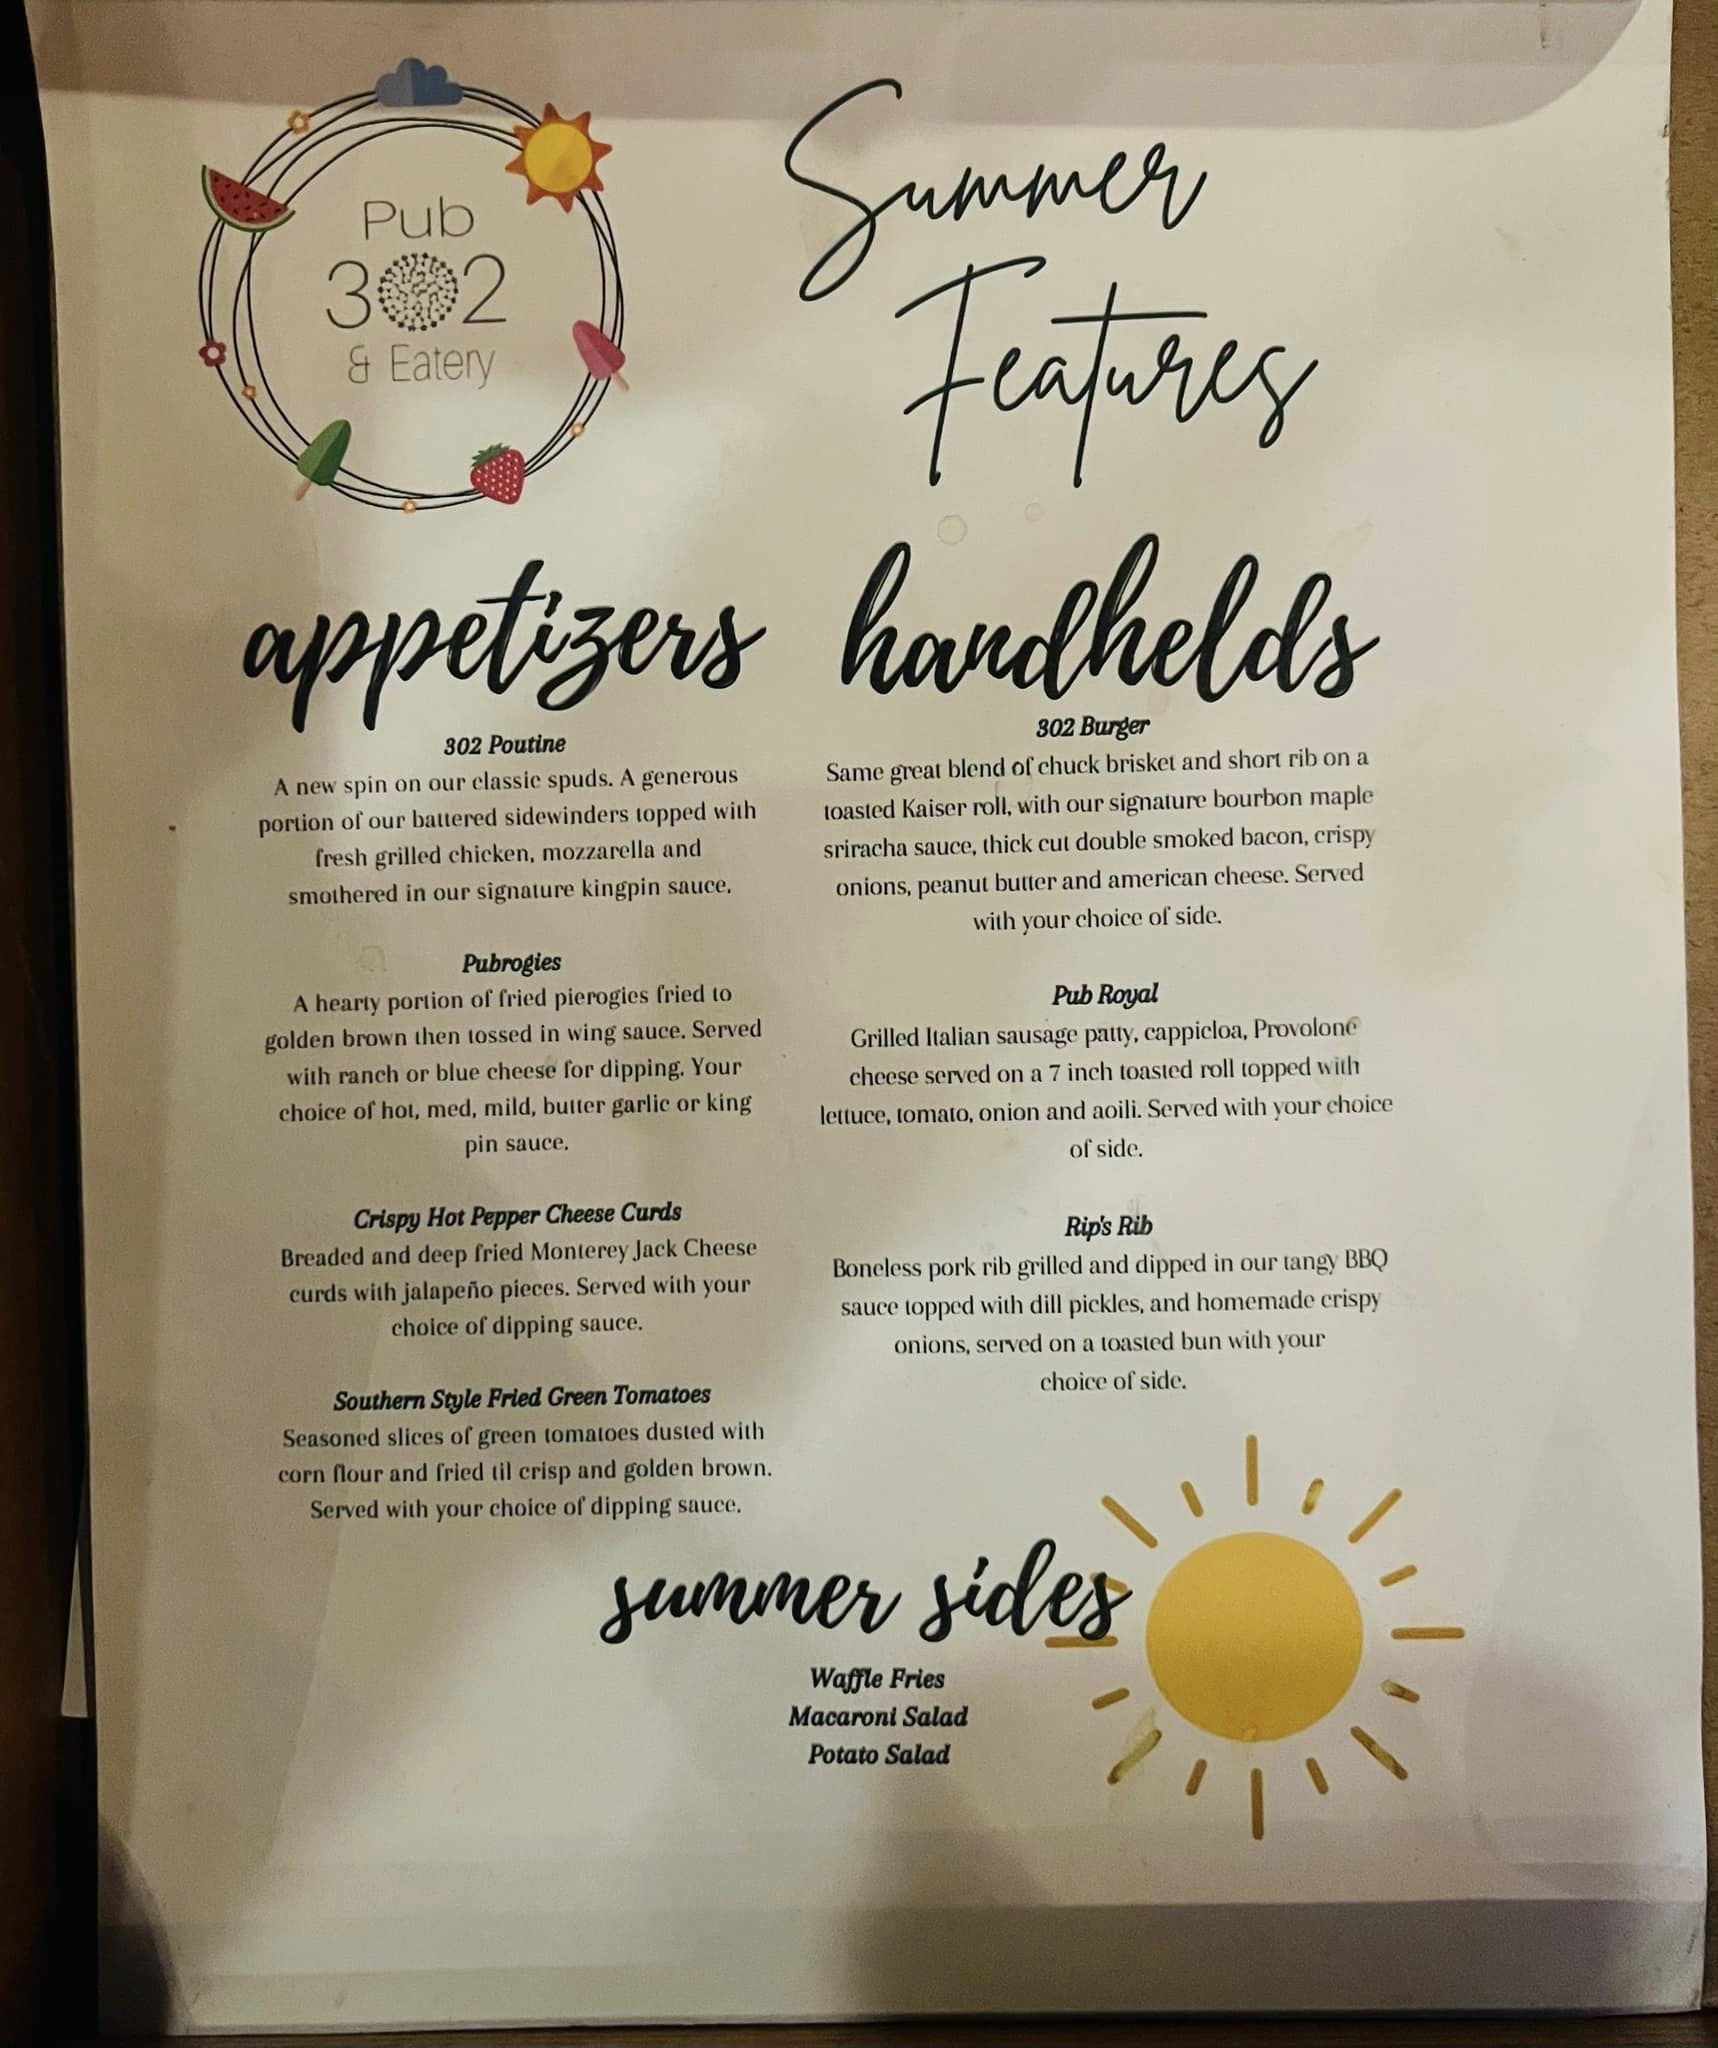 Pub
302
& Eatery
Summer
Features
appetizers
302 Poutine
A new spin on our classic spuds. A generous
portion of our battered sidewinders topped with
fresh grilled chicken, mozzarella and
smothered in our signature kingpin sauce.
Pubrogies
A hearty portion of fried pierogies fried to
golden brown then tossed in wing sauce. Served
with ranch or blue cheese for dipping. Your
choice of hot, med, mild, butter garlic or king
pin sauce.
Crispy Hot Pepper Cheese Curds
Breaded and deep fried Monterey Jack Cheese
curds with jalapeño pieces. Served with your
choice of dipping sauce.
Southern Style Fried Green Tomatoes
Seasoned slices of green tomatoes dusted with
corn flour and fried til crisp and golden brown.
Served with your choice of dipping sauce.
handhelds
302 Burger
Same great blend of chuck brisket and short rib on a
toasted Kaiser roll, with our signature bourbon maple
sriracha sauce, thick cut double smoked bacon, crispy
onions, peanut butter and american cheese. Served
with your choice of side.
Pub Royal
Grilled Italian sausage patty, cappicloa, Provolone
cheese served on a 7 inch toasted roll topped with
lettuce, tomato, onion and aoili. Served with your choice
of side.
Rip's Rib
Boneless pork rib grilled and dipped in our tangy BBQ
sauce topped with dill pickles, and homemade crispy
onions, served on a toasted bun with your
choice of side.
summer sides
Waffle Fries
Macaroni Salad
Potato Salad